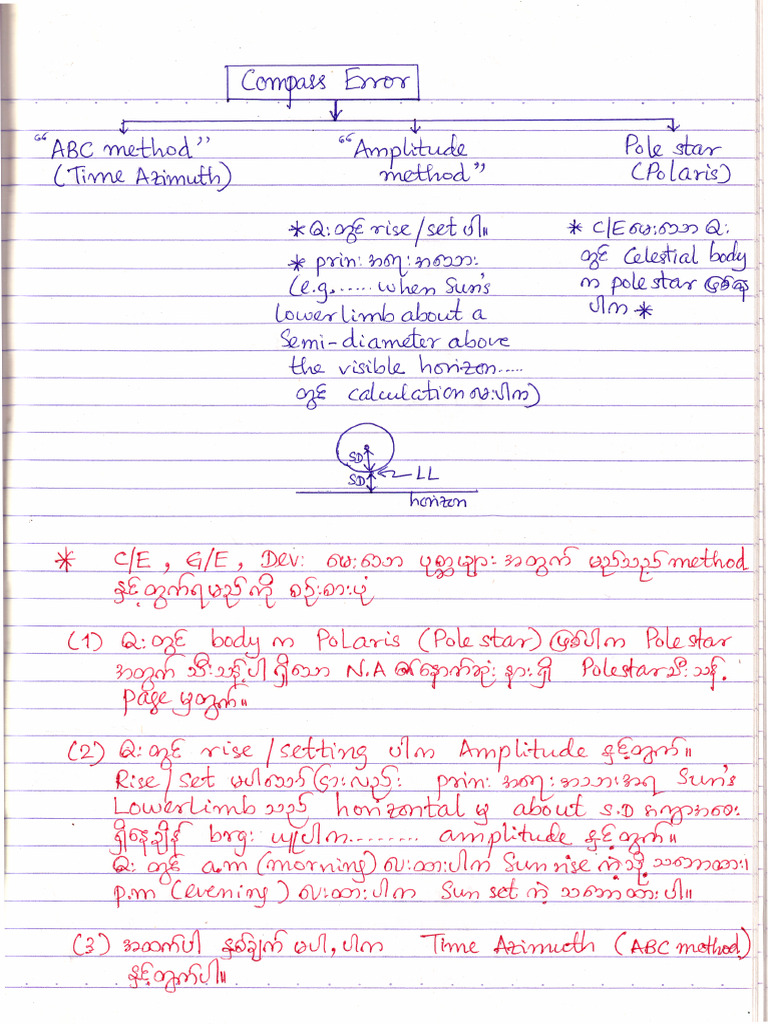 Compass Error
"ABC method"
(Time Azimuth)
"Amplitude
method"
Pole star
(Polaris)
* Q: တွင် rise/set ပါ။
* prin: အရ: အသား
(e.g....... when Sun's
lower limb about a
Semi-diameter above
the visible horizon.....
တွင် calculation မေးပါက)
* C/E မေးသော Q:
တွင် Celestial body
က pole star ဖြစ်နေ
ပါက *
SD
SD
LL
horizon
* C/E, G/E, Dev: မေးသော ပုစ္ဆာများ အတွက် မည်သည့် method
နှင့်တွက်ရမည်ကို စဉ်းစားပုံ
(1) Q: တွင် body က Polaris (Pole star) ဖြစ်ပါက Pole star
အတွက် သီးသန့်ပါရှိသော N.A ၏နောက်ဆုံးနားရှိ Polestar သီးသန့်
page မှတွက်။
(2) Q: တွင် rise/setting ပါက Amplitude နှင့်တွက်။
Rise/Set မပါသော်ငြားလည်း prin: အရ: အသားအရ Sun's
Lowerlimb သည် horizontal မှ about S.D အကွာအဝေး
ရှိနေချိန် brg: ယူပါက......... amplitude နှင့်တွက်။
Q: တွင် a.m (morning) ပေးထားပါက Sun rise ကဲ့သို့ သဘောထား၊
p.m (evening) ပေးထားပါက Sun set ကဲ့ သဘောထားပါ။
(3) အထက်ပါ နှစ်ချက် မပါ,ပါက Time Azimuth (ABC method)
နှင့်တွက်ပါ။